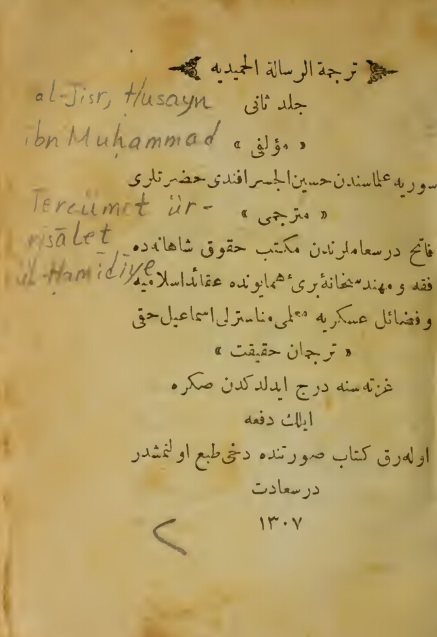 ترجمة الرسالة الحميديه
جلد ثانى
« مؤلفى »
سوريه علماسندن حسين الجسر افندى حضرتلرى
« مترجمى »
فاتح درسعاملرندن مكتب حقوق شاهانده
فقه و مهندسخانۀ برئ همايونده عقائد اسلاميه
و فضائل عسكريه معلمى مناسترلى اسماعيل حقى
« ترجمان حقيقت »
غزته سنه درج ايدلدكدن صكره
ايلك دفعه
اوله رق كتاب صورتنده دخى طبع اولنمشدر
درسعادت
١٣٠٧
al-Jisr, Ḥusayn
ibn Muḥammad
Tercümet ür-
risālet
ül-Ḥamīdīye